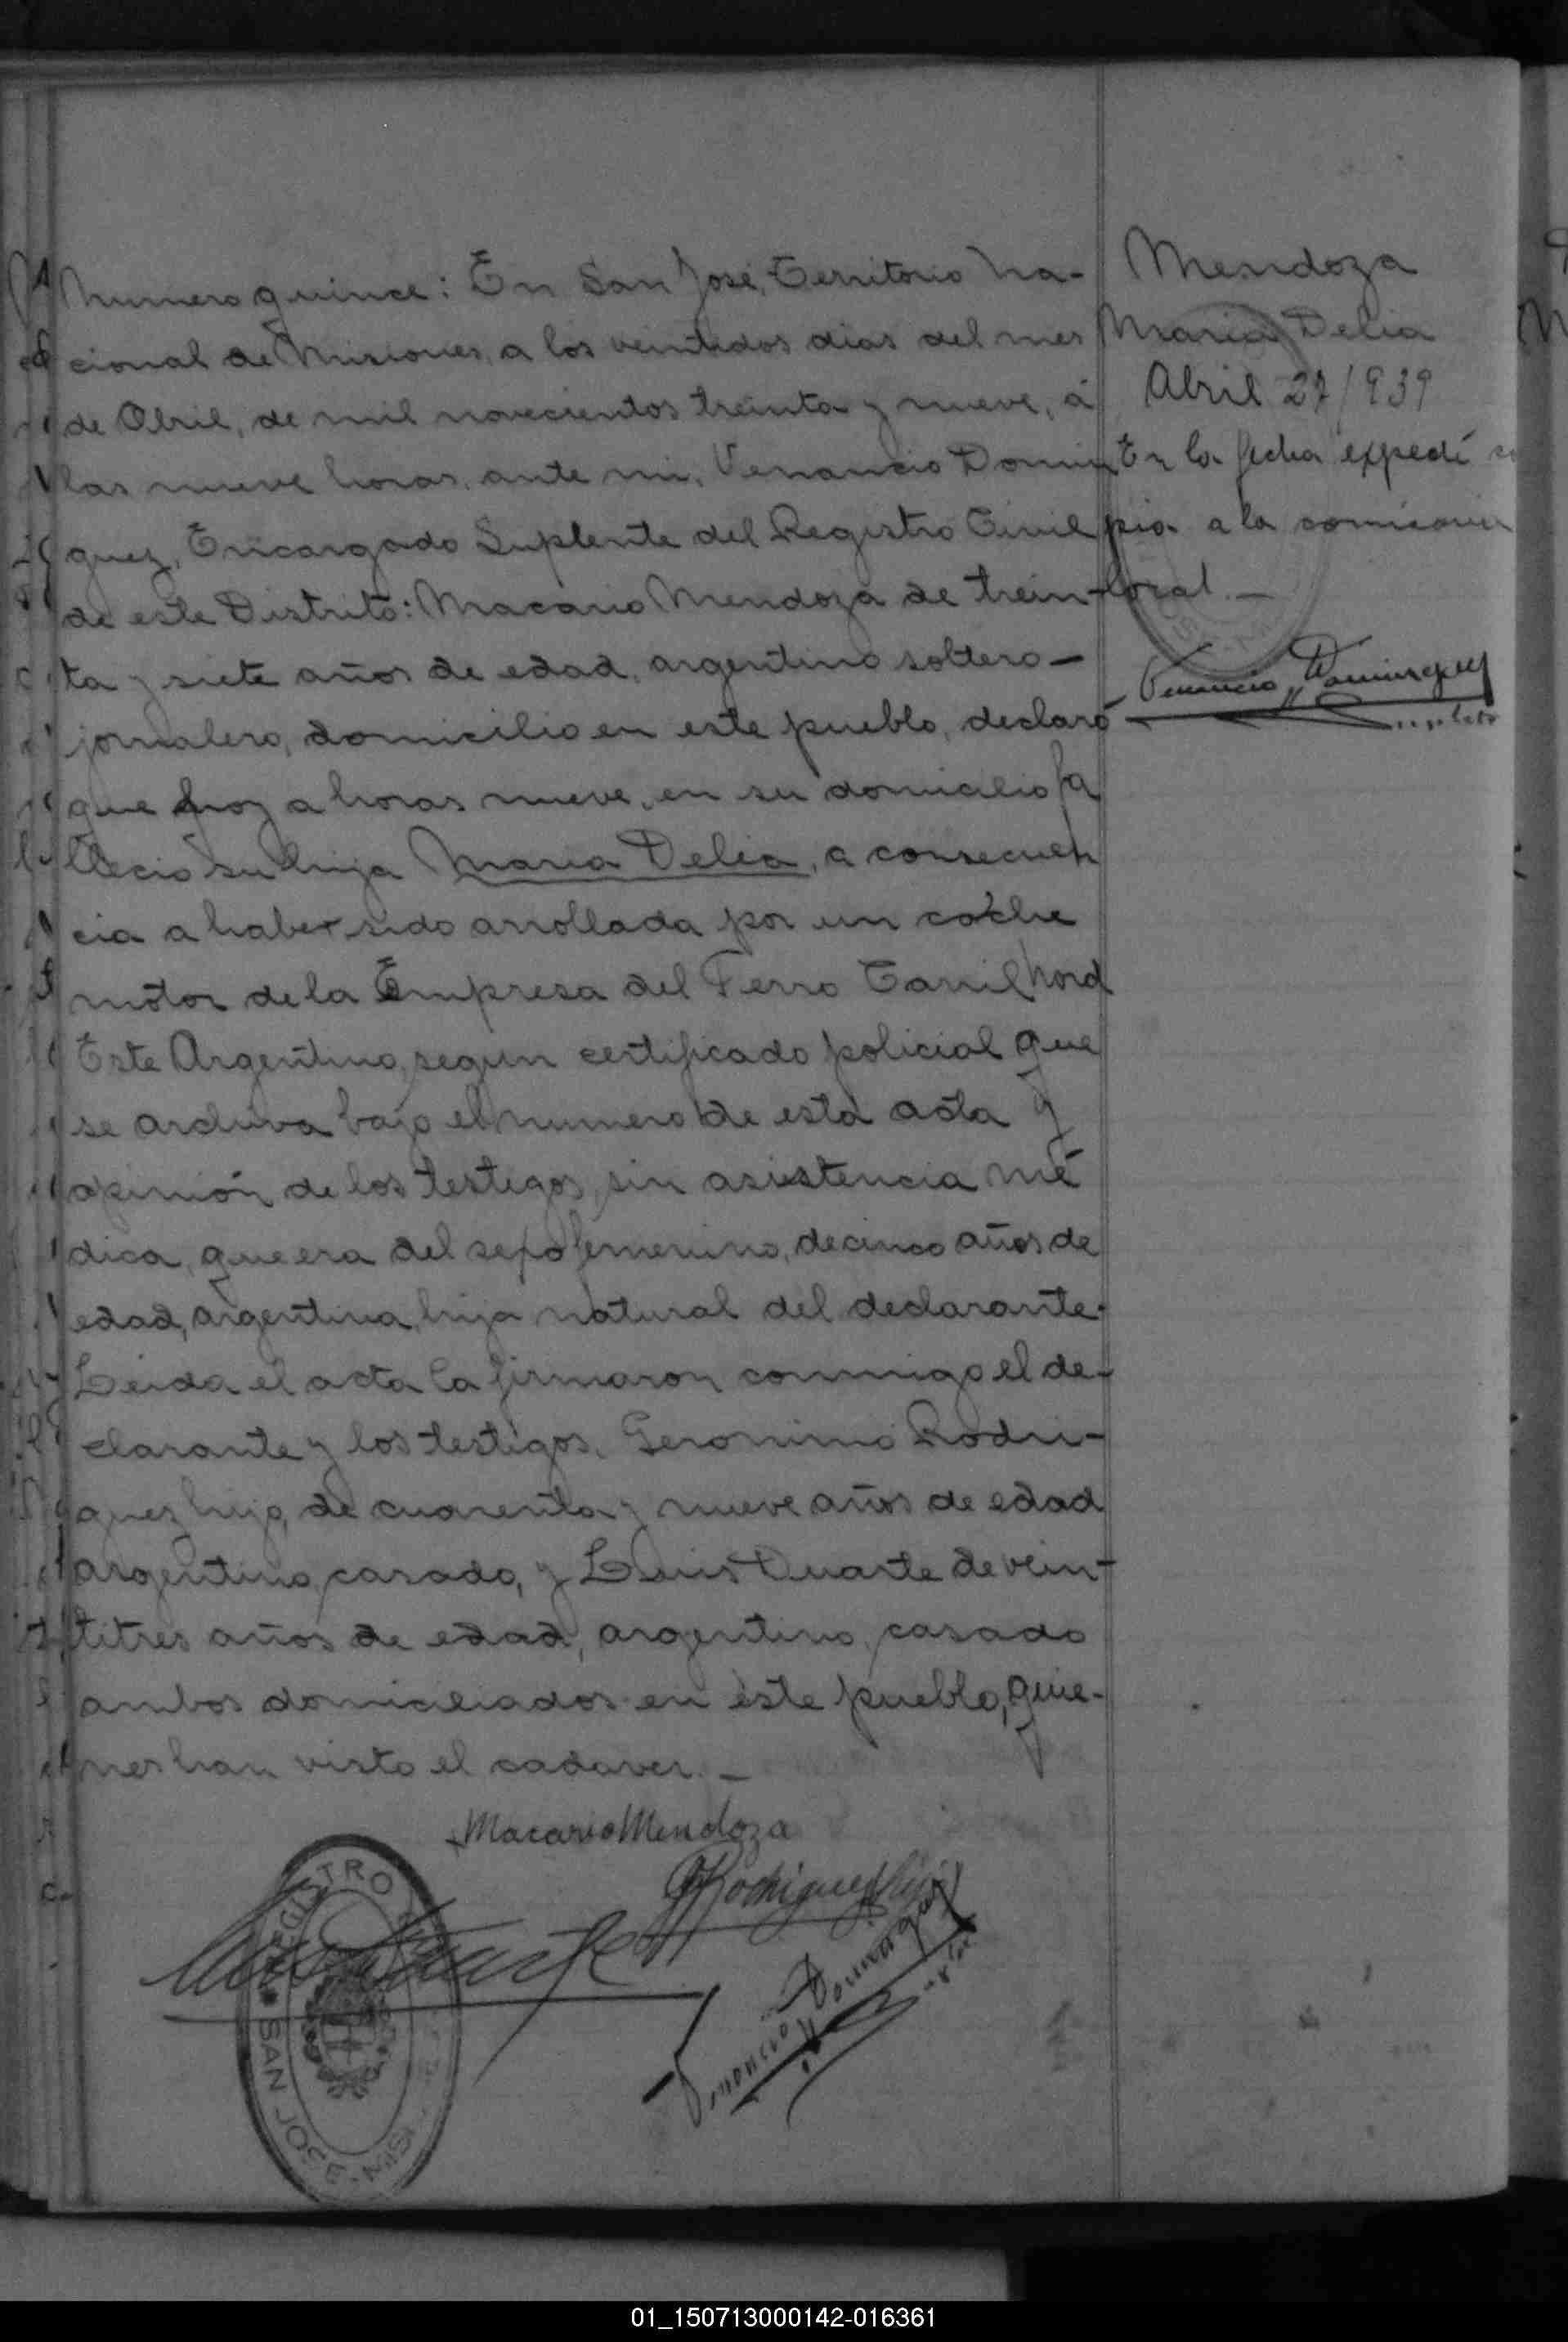 Numero quince: En San José, Territorio Na-
cional de Misiones, a los veintidos dias del mes
de Abril, de mil novecientos treinta y nueve, á
las nueve horas, ante mi, Venancio Domin
guez, Encargado Suplente del Registro Civil
de este Distrito: Macario Mendoza de trein-
ta y siete años de edad, argentino soltero-
jornalero, domicilio en este pueblo, declaró
que hoy a horas nueve, en su domicilio fa
llecio su hija Maria Delia, a consecuen
cia a haber sido arrollada por un coche
motor de la Empresa del Ferro Carril Nord
Este Argentino, segun certificado policial que
se archiva bajo el numero de esta acta y
opinión de los testigos, sin asistencia mé
dica, que era del sexo femenino, de cinco años de
edad, argentina, hija natural del declarante.
Leida el acta la firmaron conmigo el de-
clarante y los testigos, Geronimo Rodri-
guez hijo, de cuarenta y nueve años de edad
argentino, casado, y Luis Duarte de vein-
titres años de edad, argentino, casado
ambos domiciliados en este pueblo, quie-
nes han visto el cadaver.-
Macario Mendoza
GRodriguez hijo
Luis Duarte
Venancio Dominguez
REGISTRO
SAN JOSE - MIS
Mendoza
Maria Delia
Abril 27/939
En la fecha expedí co
pia a la comisaria
local.-
Venancio Dominguez
Suplente
01_150713000142-016361